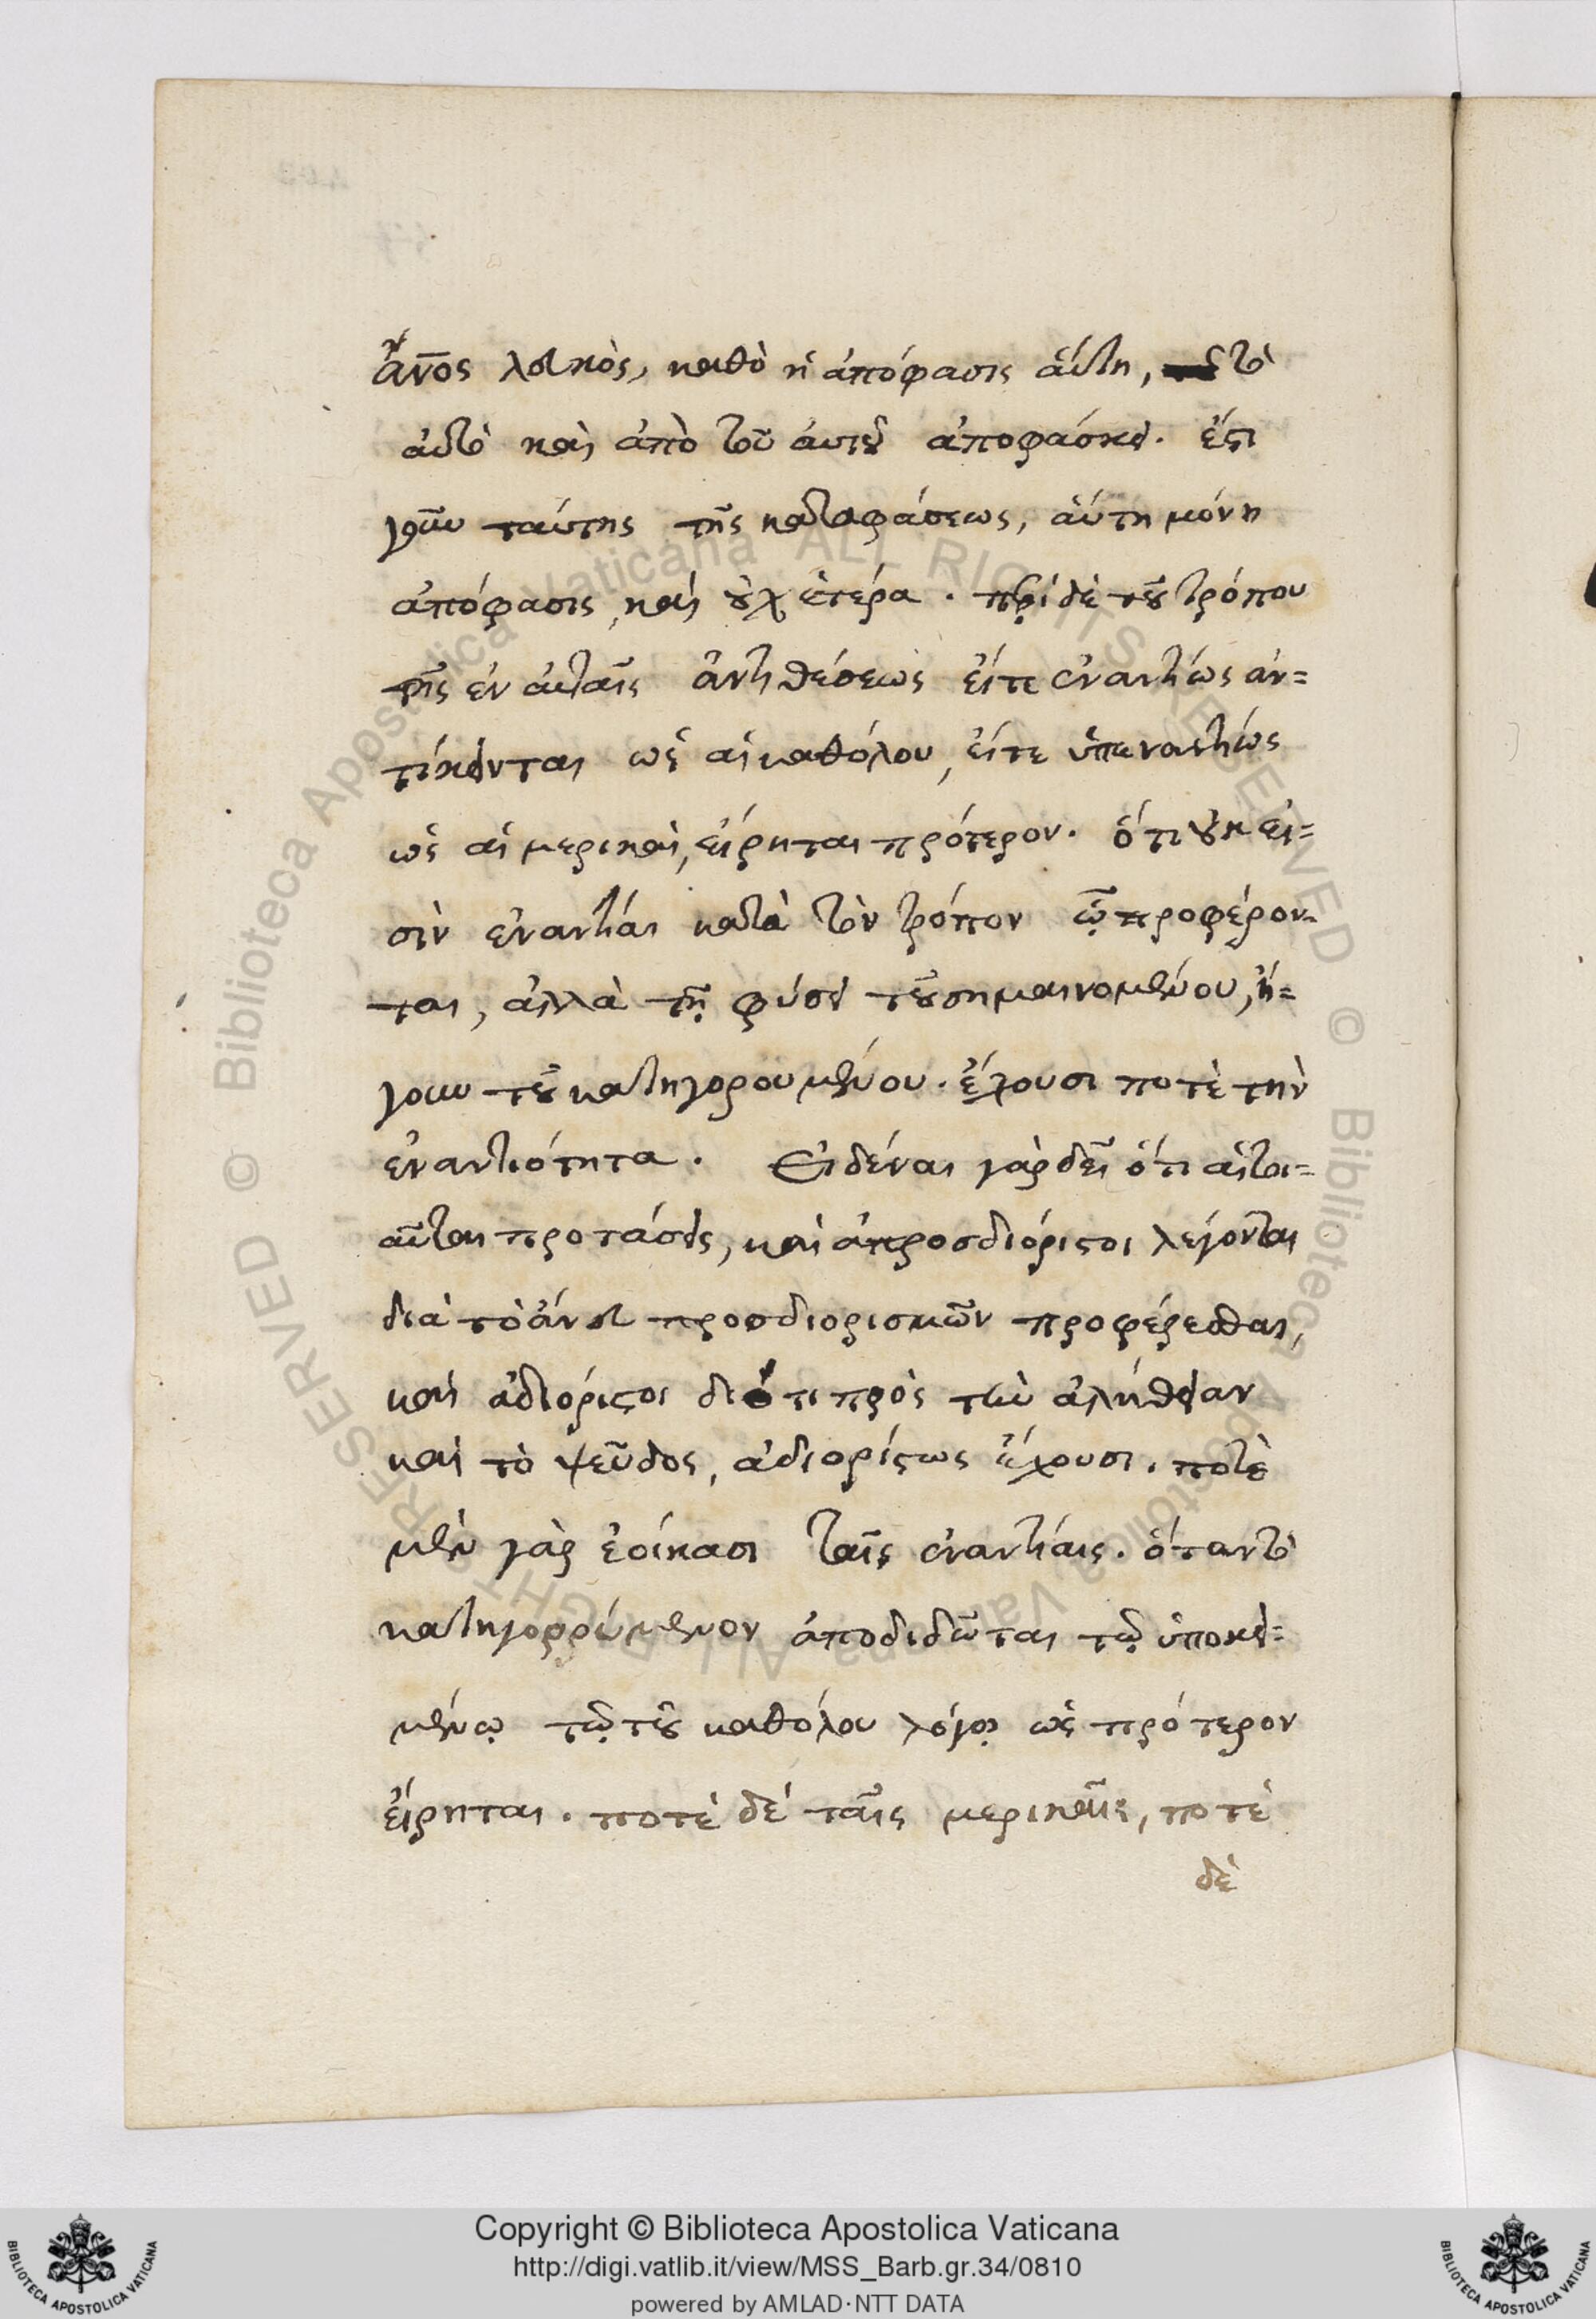 ἄν̅ος λευκὸς, καθὸ ἡ ἀπόφασις αὕτη, τὸ
αὐτὸ καὶ ἀπὸ τοῦ αὐτοῦ ἀποφάσκει. ἔστι
γοῦν ταύτης τῆς καταφάσεως, αὕτη μόνη
ἀπόφασις, καὶ οὐχ ἑτέρα. περὶ δὲ τοῦ τρόπου
τῆς ἐν αὐταῖς ἀντιθέσεως εἴτε ἐναντίως ἀν=
τίκεινται ὡς αἱ καθόλου, εἴτε ὑπεναντίως
ὡς αἱ μερικαὶ, εἴρηται πρότερον. ὅτι οὐκ εἰ=
σὶν ἐναντίαι κατὰ τὸν τρόπον ᾧ προφέρον=
ται, ἀλλὰ τῇ φύσει τοῦ σημαινομένου, ἤ=
γουν τοῦ κατηγορουμένου. ἔχουσι ποτὲ τὴν
ἐναντιότητα. Εἰδέναι γὰρ δεῖ ὅτι αἱ τοι=
αῦται προτάσεις, καὶ ἀπροσδιόριστοι λέγονται
διὰ τὸ ἄνευ προσδιορισμῶν προφέρεσθαι,
καὶ ἀδιόριστοι διότι πρὸς τὴν ἀλήθειαν
καὶ τὸ ψεῦδος, ἀδιορίστως ἔχουσι. ποτὲ
μὲν γὰρ ἐοίκασι ταῖς ἐναντίαις. ὅταν τὸ
κατηγορούμενον ἀποδιδῶται τῷ ὑποκει=
μένῳ τῷ τοῦ καθόλου λόγῳ ὡς πρότερον
εἴρηται. ποτὲ δὲ ταῖς μερικαῖς, ποτὲ
δὲ
© Biblioteca Apostolica Vaticana ALL RIGHTS RESERVED © Biblioteca Apostolica Vaticana ALL RIGHTS RESERVED
Copyright © Biblioteca Apostolica Vaticana
http://digi.vatlib.it/view/MSS_Barb.gr.34/0810
powered by AMLAD·NTT DATA
BIBLIOTECA APOSTOLICA VATICANA
BIBLIOTECA APOSTOLICA VATICANA